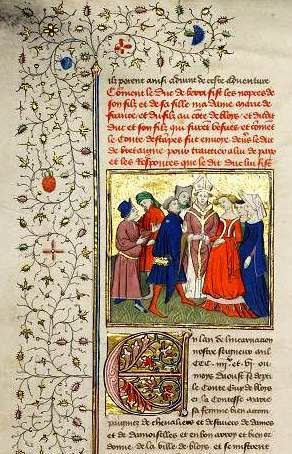 ilz porent ainsi advint de ceste adventure
Coment le Duc de berry fist les nopces de
son filz et de sa fille ma dame marie de
france et du filz au cote de bloys et
duc et son filz qui furet
le Conte destapes fut envoye devs le duc
de bretaigne pour traitier au de paix
et les Responces que le dit duc lui fist
En lan de lincarnacion
nostre seigneur mil
CCC
moys daoust se
le Conte Guy de bloys
et la Contesse marie
sa femme bien accom
paignez de chevaliers et descuiers de dames
et de damoiselles et en bon arroy et bien or
donne de la ville de bloys et se mistrent